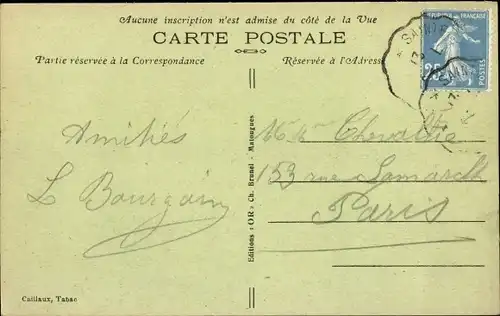 Aucune inscription n'est admise du côté de la Vue
CARTE POSTALE
Partie réservée à la Correspondance
Réservée à l'Adresse
RÉPUBLIQUE FRANÇAISE
25
Amitiés
L Bourgain
Chevalier
153 rue Lamarck
Paris
Editions "OR" Ch. Brunel - Matougues
Caillaux, Tabac